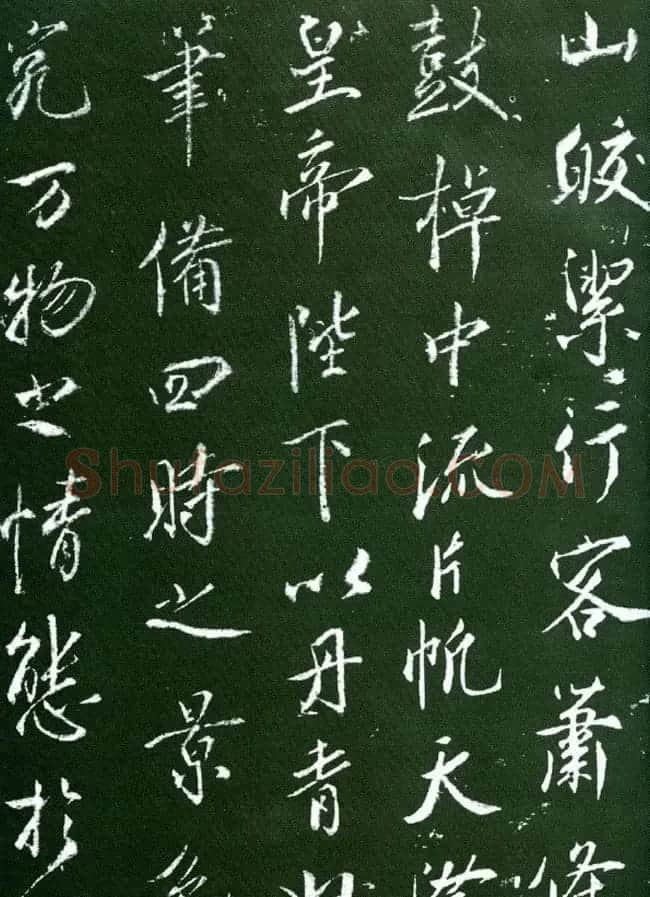 山皎潔行客蕭條
鼓棹中流片帆天
皇帝陛下以丹青
筆備四時之景色
究万物之情態於
Shufaziliao.COM